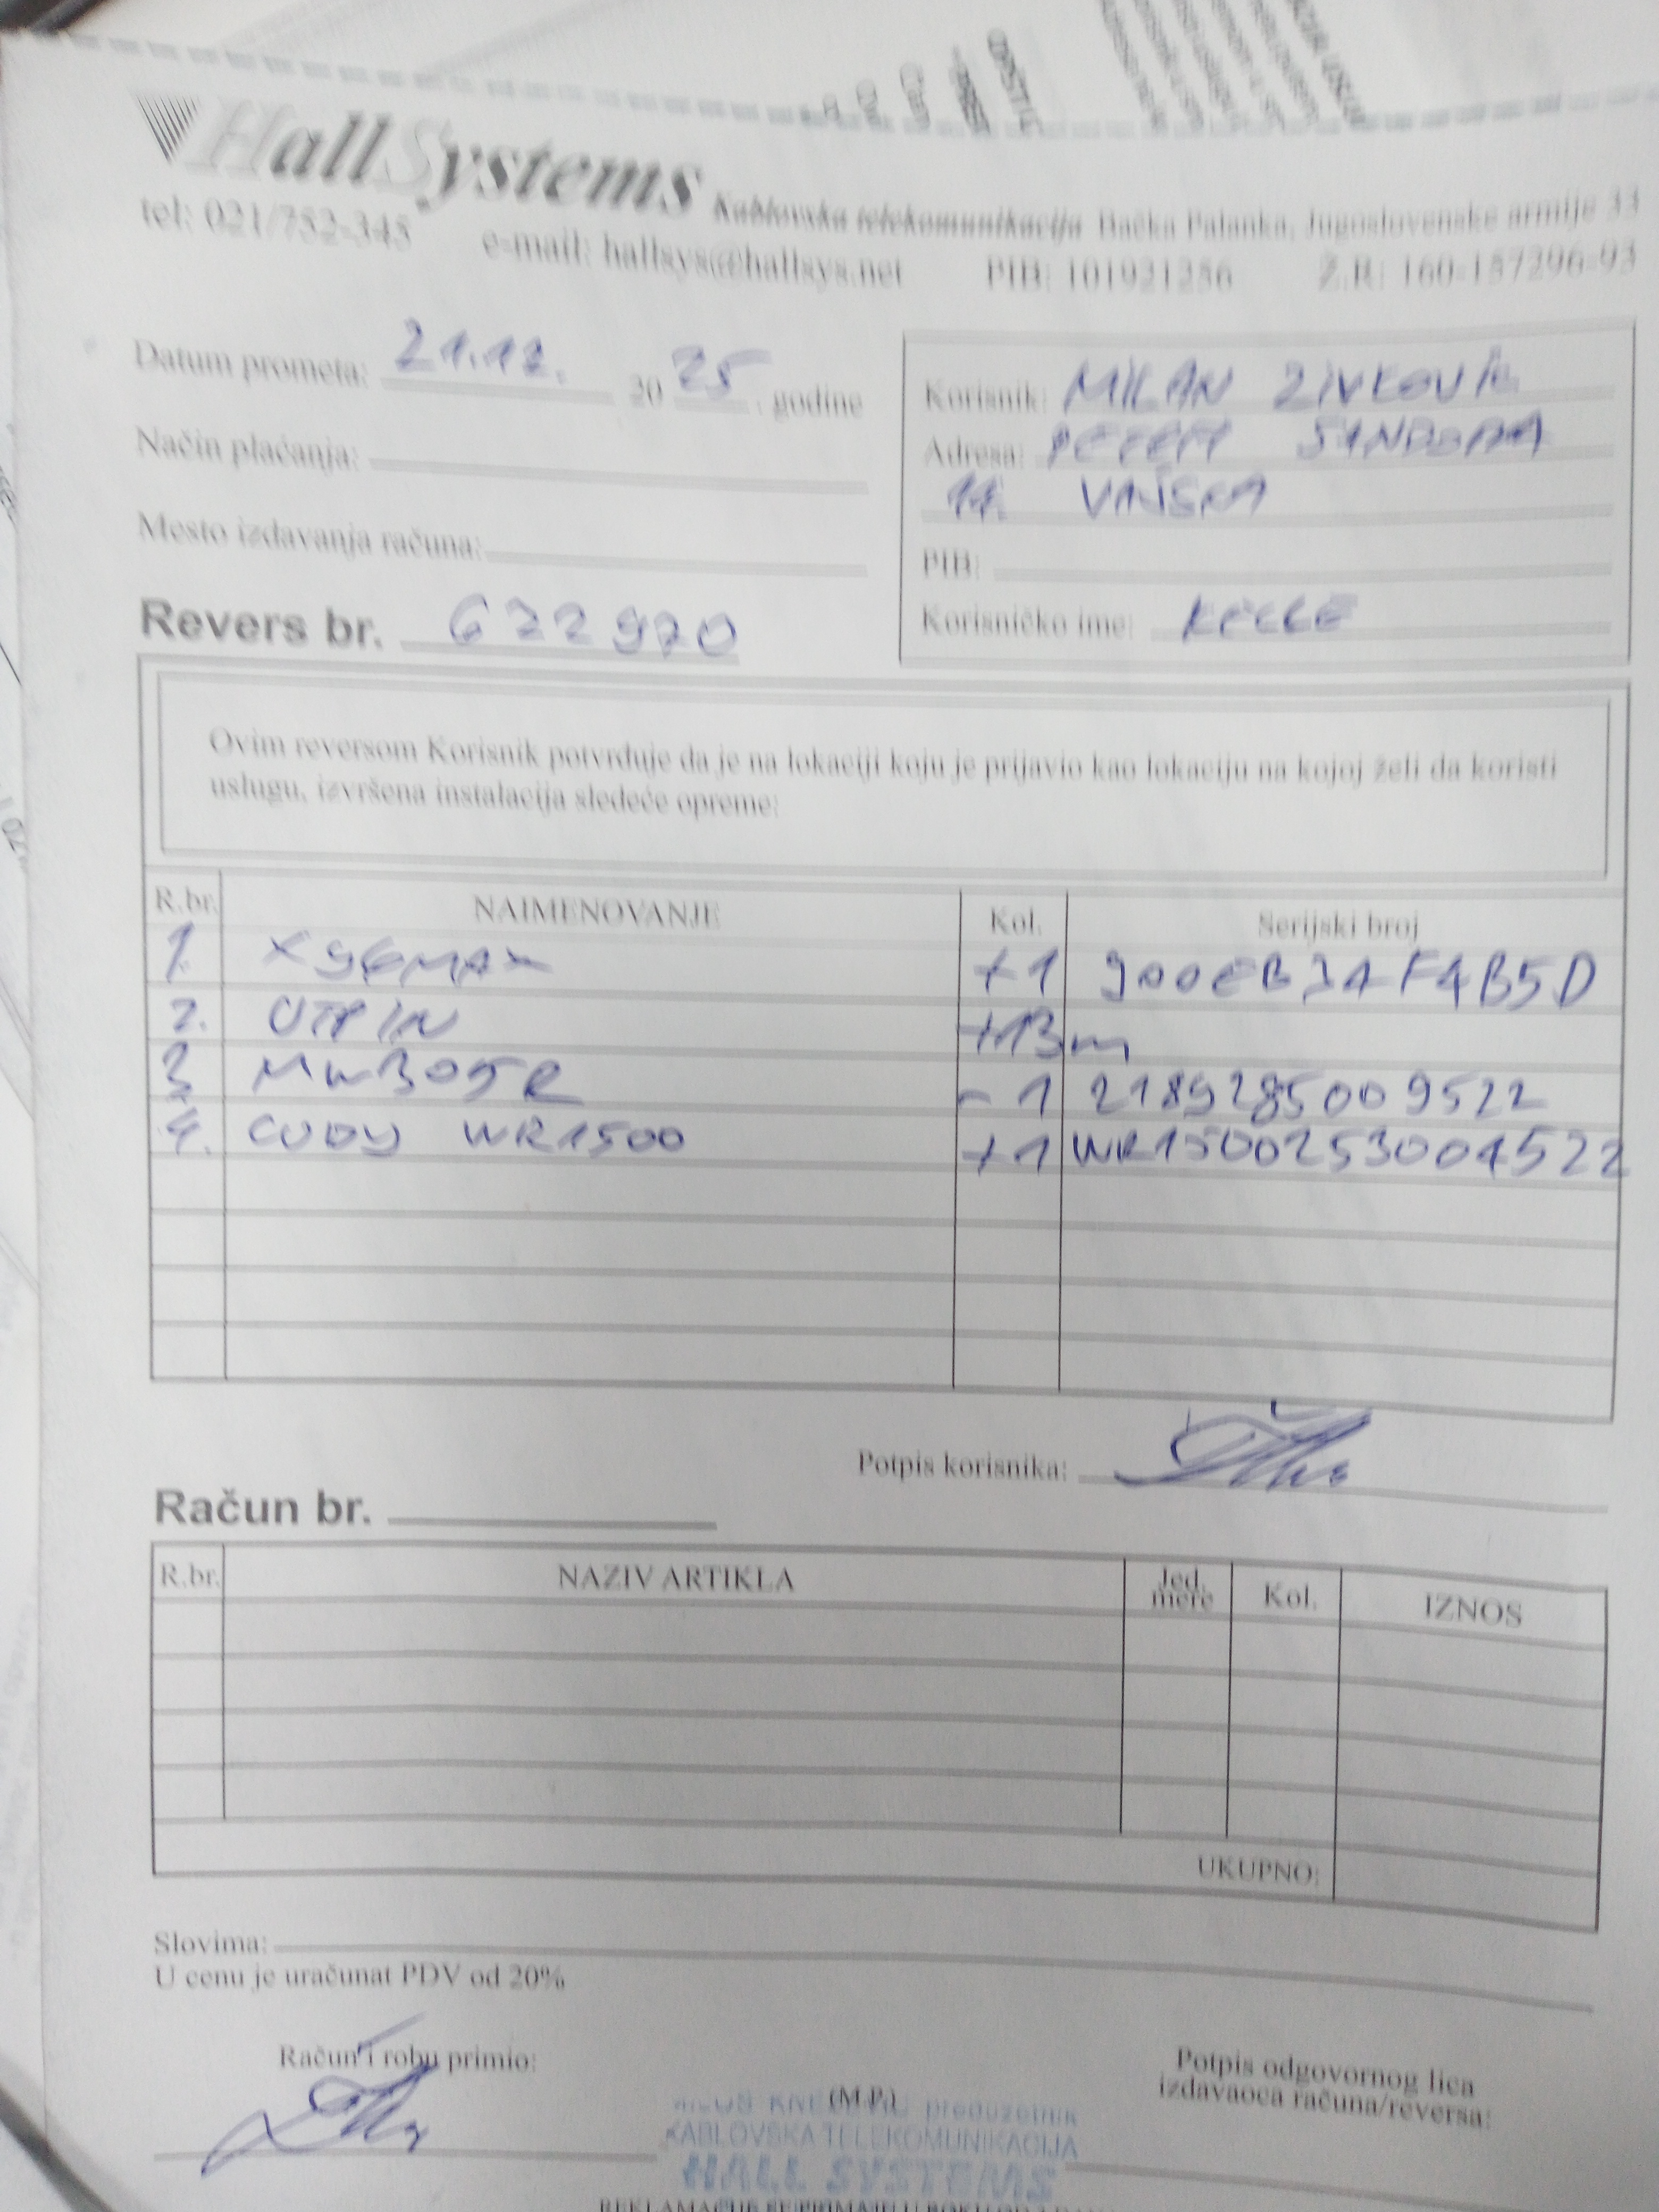 Hall Systems Kablovska telekomunikacija Bačka Palanka, Jugoslovenske armije 33
tel: 021/752-345 e-mail: hallsys@hallsys.net PIB: 101921256 Ž.R: 160-157296-93
Datum prometa: 21.12. 20 25 . godine
Način plaćanja:
Mesto izdavanja računa:
Revers br. 622970
Korisnik: MILAN ZIVKOVIĆ
Adresa: PETEFI SANDORA
11. VAJSKA
PIB:
Korisničko ime:
Ovim reversom Korisnik potvrđuje da je na lokaciji koju je prijavio kao lokaciju na kojoj želi da koristi
uslugu, izvršena instalacija sledeće opreme:
R.br. NAIMENOVANJE Kol. Serijski broj
1. X96MAX +1 900EB3AF4B5D
2. UTP IN +13m
3. MW305R - 1 2189285009522
4. CUDY WR1500 +1 WR1500253004522
Potpis korisnika:
Račun br.
R.br. NAZIV ARTIKLA Jed. mere Kol. IZNOS
UKUPNO:
Slovima:
U cenu je uračunat PDV od 20%
Račun i robu primio:
(M.P.)
Potpis odgovornog lica
izdavaoca računa/reversa:
preduzetnik
KABLOVSKA TELEKOMUNIKACIJA
HALL SYSTEMS